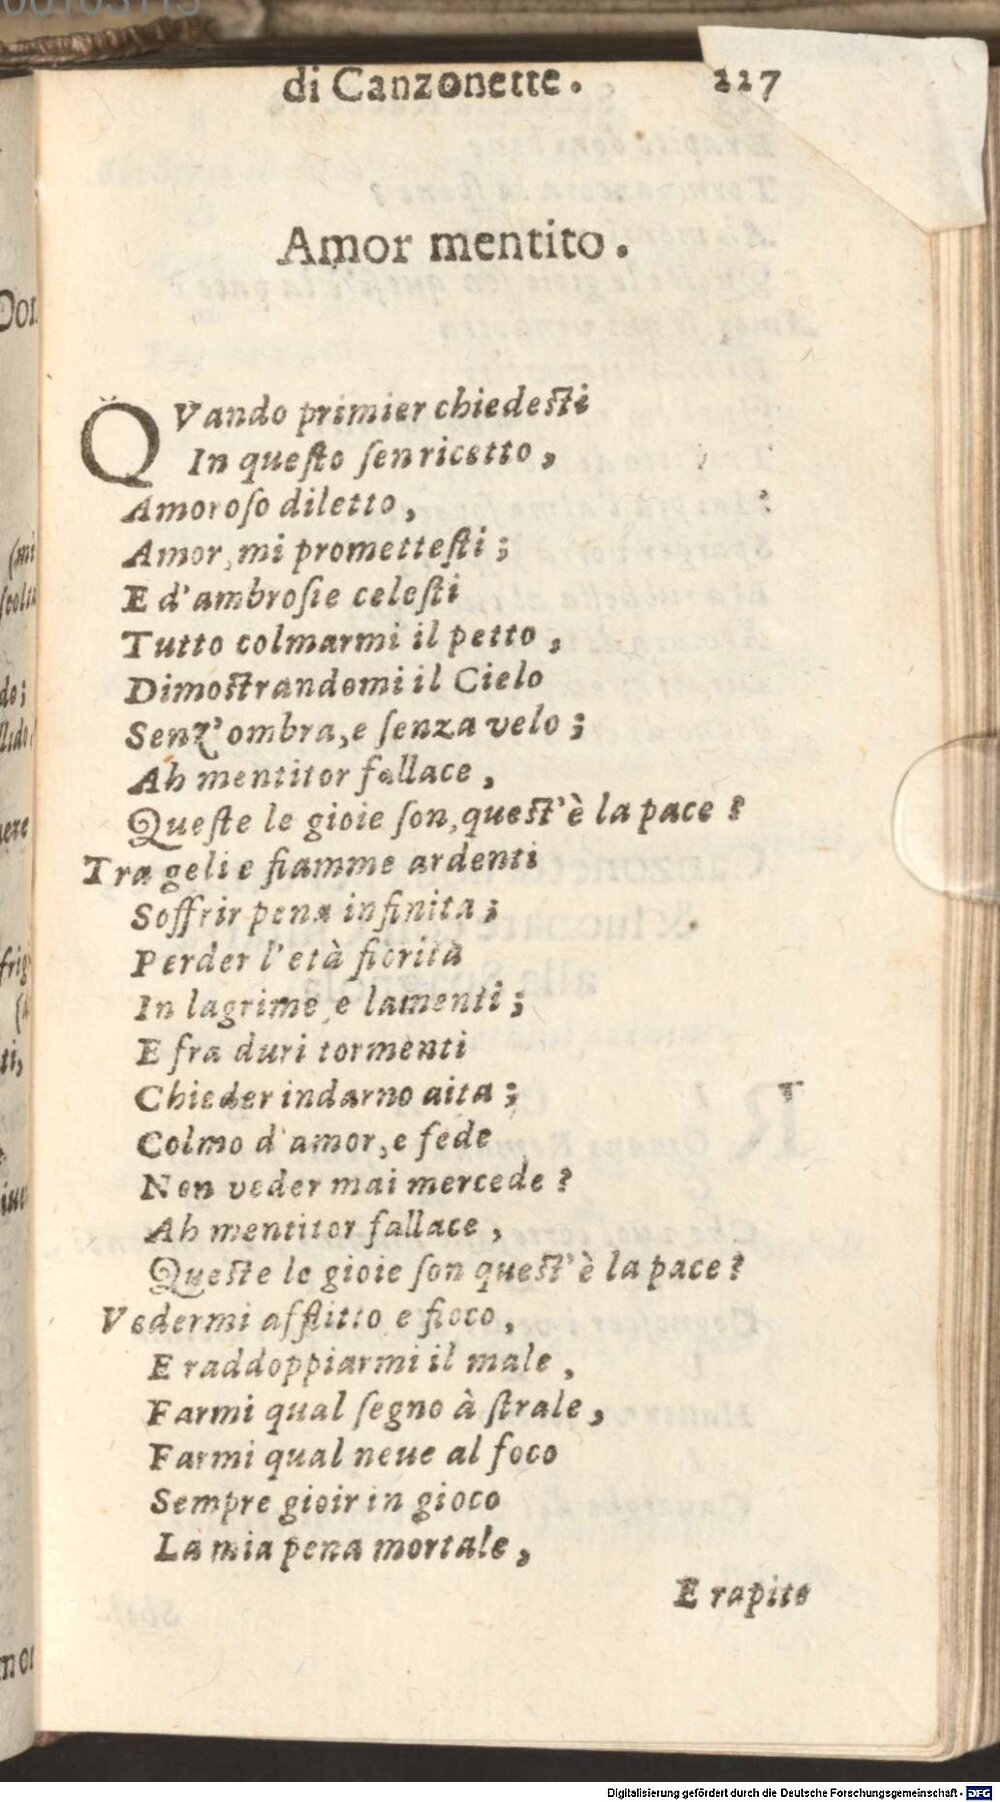 di Canzonette. 227
Amor mentito.
QVando primier chiedesti
In questo sen ricetto,
Amoroso diletto,
Amor, mi promettesti;
E d'ambrosie celesti
Tutto colmarmi il petto,
Dimostrandomi il Cielo
Senz'ombra, e senza velo;
Ah mentitor fallace,
Queste le gioie son, quest'è la pace?
Tra geli e fiamme ardenti
Soffrir pena infinita;
Perder l'età fiorita
In lagrime, e lamenti;
E fra duri tormenti
Chieder indarno aita;
Colmo d'amor, e fede
Non veder mai mercede?
Ah mentitor fallace,
Queste le gioie son quest'è la pace?
Vedermi afflitto e fioco,
E raddoppiarmi il male,
Farmi qual segno à strale,
Farmi qual neue al foco
Sempre gioir in gioco
La mia pena mortale,
E rapite
Digitalisierung gefördert durch die Deutsche Forschungsgemeinschaft - DFG